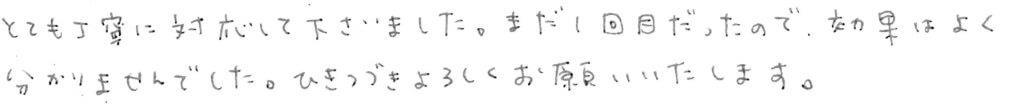 とても丁寧に対応して下さいました。まだ1回目だったので、効果はよく
分かりませんでした。ひきつづきよろしくお願いいたします。